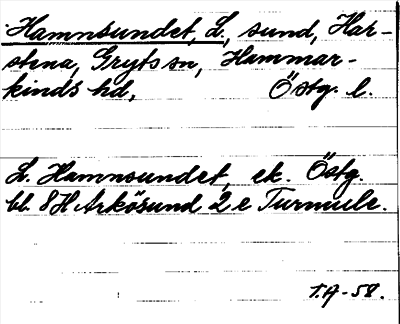 Hamnsundet, L., sund, Har-
stena, Gryts sn, Hammar-
kinds hd, Östg. l.
L. Hamnsundet, ek. Östg.
bl. 8H Arkösund 2e Turmule.
T.A-58.